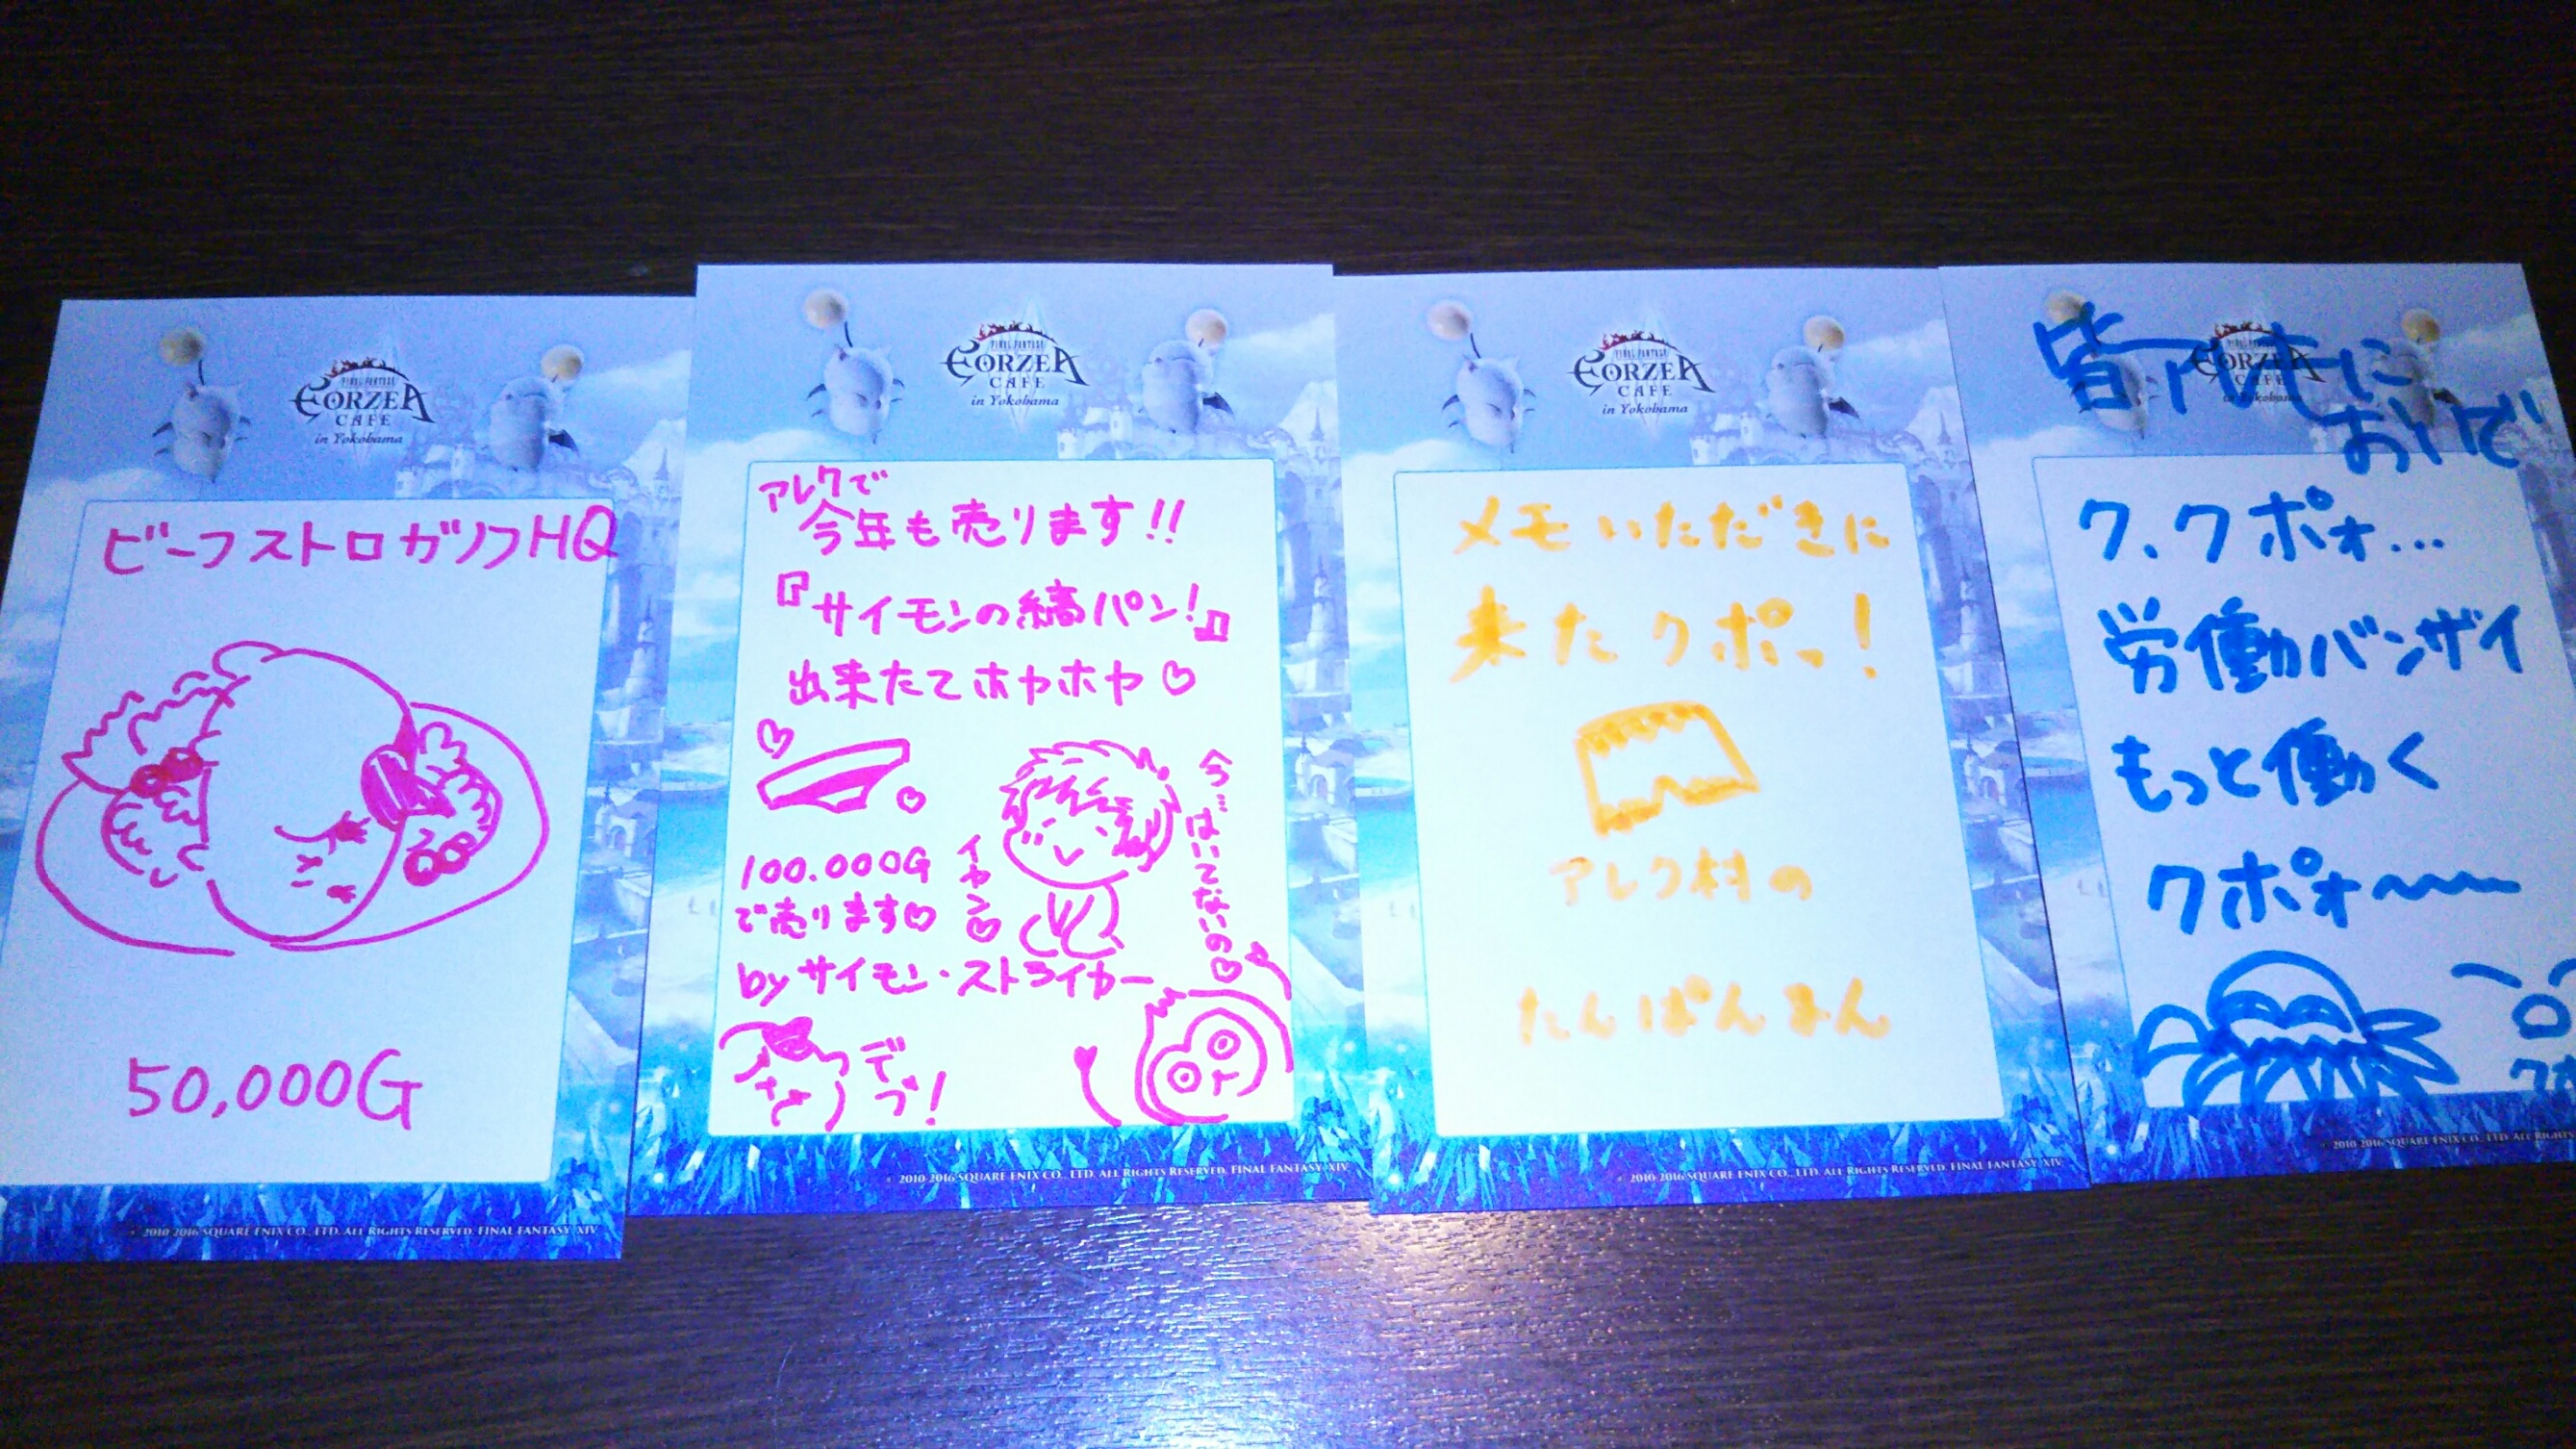 FINAL FANTASY
EORZEA
CAFE
in Yokohama
ビーフストロガノフHQ
50,000G
© 2010-2016 SQUARE ENIX CO., LTD. ALL RIGHTS RESERVED. FINAL FANTASY XIV
FINAL FANTASY
EORZEA
CAFE
in Yokohama
アレクで
今年も売ります!!
『サイモンの縞パン!』
出来たてホヤホヤ♡
今…はいてないの♡
イヤン♡
100.000G
で売ります♡
byサイモン・ストライカー
デブ!
© 2010-2016 SQUARE ENIX CO., LTD. ALL RIGHTS RESERVED. FINAL FANTASY XIV
FINAL FANTASY
EORZEA
CAFE
in Yokohama
メモいただきに
来たクポっ!
アレク村の
たんぱんまん
© 2010-2016 SQUARE ENIX CO., LTD. ALL RIGHTS RESERVED. FINAL FANTASY XIV
FINAL FANTASY
EORZEA
CAFE
in Yokohama
おいで
ク、クポォ…
労働バンザイ
もっと働く
クポォ〜〜
© 2010-2016 SQUARE ENIX CO., LTD. ALL RIGHTS